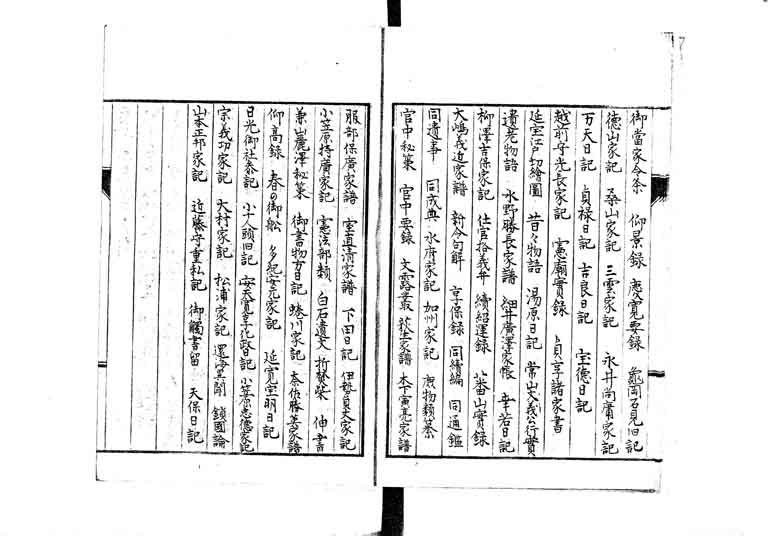 御當家令条　仰景録　慶寛要録　亀岡石見旧記
徳山家記　桑山家記　三雲家記　永井尚廣家記
万天日記　貞禄日記　吉良日記　宝徳日記
越前守光長家記　憲廟實録　貞享諸家書
延宝江戸切繪圖　昔々物語　湯原日記　常山文義公行實
遺老物語　水野勝長家譜　細井廣澤家帳　幸若日記
柳澤吉保家記　仕官格義弁　續紹運録　番山實録
大嶋義近家譜　新令句解　享保録　同續編　同通鑑
同遺事　同成典　水府家記　加州家記　庶物類纂
官中秘策　官中要録　文露叢　萩生家譜　本寅亮家譜
服部保廣家譜　室直清家譜　下田日記　伊勢貞丈家記
小笠原持廣家記　憲法部類　白石遺文　折焚柴　伸書
兼山麗澤秘策　御書物方日記　蜷川家記　奈佐勝英家譜
仰高録　春の御舩　多紀安元家記　延寛宝明日記
日光御社参記　小十人頭旧記　安天寛享化政日記　小笠原忠徳家記
宗義功家記　大村家記　松浦家記　還海異聞　鎖國論
山本正邦家記　近藤守重私記　御觸書留　天保日記